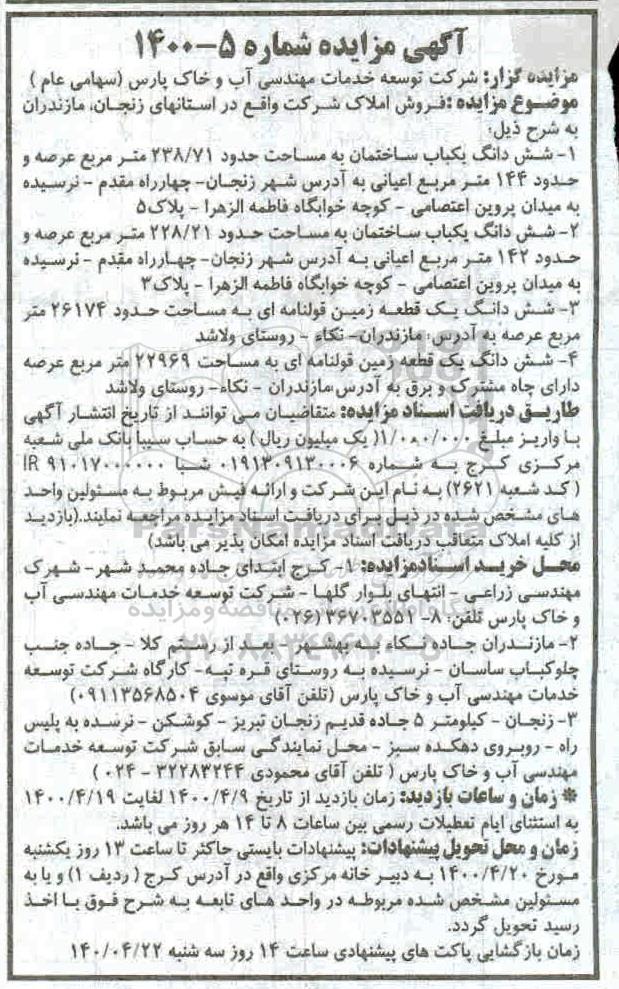 آگهی مزایده شماره ۵-۱۴۰۰
مزایده گزار: شرکت توسعه خدمات مهندسی آب و خاک پارس (سهامی عام )
موضوع مزایده :فروش املاک شرکت واقع در استانهای زنجان، مازندران
به شرح ذیل:
۱- شش دانگ یکباب ساختمان به مساحت حدود ۲۳۸/۷۱ متر مربع عرصه و
حدود ۱۴۴ متر مربع اعیانی به آدرس شهر زنجان- چهارراه مقدم - نرسیده
به میدان پروین اعتصامی - کوچه خوابگاه فاطمه الزهرا - پلاک۵
۲- شش دانگ یکباب ساختمان به مساحت حدود ۲۲۸/۲۱ متر مربع عرصه و
حدود ۱۴۲ متر مربع اعیانی به آدرس شهر زنجان- چهارراه مقدم - نرسیده
به میدان پروین اعتصامی - کوچه خوابگاه فاطمه الزهرا - پلاک۳
۳- شش دانگ یک قطعه زمین قولنامه ای به مساحت حدود ۲۶۱۷۴ متر
مربع عرصه به آدرس: مازندران- نکاء - روستای ولاشد
۴- شش دانگ یک قطعه زمین قولنامه ای به مساحت ۲۲۹۶۹ متر مربع عرصه
دارای چاه مشترک و برق به آدرس:مازندران - نکاء- روستای ولاشد
طاریق دریافت اسناد مزایده: متقاضیان می توانند از تاریخ انتشار آگهی
با واریز مبلغ ۱/۰۰۰/۰۰۰( یک میلیون ریال ) به حساب سیبا بانک ملی شعبه
مرکزی کرج به شماره ۰۱۹۱۳۰۹۱۳۰۰۰۶ شبا IR ۹۱۰۱۷۰۰۰۰۰۰
( کد شعبه ۲۶۲۱) به نام این شرکت و ارائه فیش مربوط به مسئولین واحد
های مشخص شده در ذیل برای دریافت اسناد مزایده مراجعه نمایند.(بازدید
از کلیه املاک متعاقب دریافت اسناد مزایده امکان پذیر می باشد)
محل خرید اسنادمزایده: ۱- کرج ابتدای جاده محمد شهر- شهرک
مهندسی زراعی - انتهای بلوار گلها - شرکت توسعه خدمات مهندسی آب
و خاک پارس تلفن: ۸- ۳۶۷۰۳۵۵۱ (۰۲۶)
۲- مازندران جاده نکاء به بهشهر - بعد از رستم کلا - جاده جنب
چلوکباب ساسان - نرسیده به روستای قره تپه- کارگاه شرکت توسعه
خدمات مهندسی آب و خاک پارس (تلفن آقای موسوی ۰۹۱۱۳۵۶۸۵۰۴)
۳- زنجان - کیلومتر ۵ جاده قدیم زنجان تبریز - کوشکن - نرسده به پلیس
راه - روبروی دهکده سبز - محل نمایندگی سابق شرکت توسعه خدمات
مهندسی آب و خاک پارس ( تلفن آقای محمودی ۳۲۲۸۳۲۴۴ - ۰۲۴ )
* زمان و ساعات بازدید: زمان بازدید از تاریخ ۱۴۰۰/۴/۹ لغایت ۱۴۰۰/۴/۱۹
به استثنای ایام تعطیلات رسمی بین ساعات ۸ تا ۱۴ هر روز می باشد.
زمان و محل تحویل پیشنهادات: پیشنهادات بایستی حاکثر تا ساعت ۱۳ روز یکشنبه
مورخ ۱۴۰۰/۴/۲۰ به دبیر خانه مرکزی واقع در آدرس کرج ( ردیف ۱) و یا به
مسئولین مشخص شده مربوطه در واحد های تابعه به شرح فوق با اخذ
رسید تحویل گردد.
زمان بازگشایی پاکت های پیشنهادی ساعت ۱۴ روز سه شنبه ۱۴۰/۰۴/۲۲